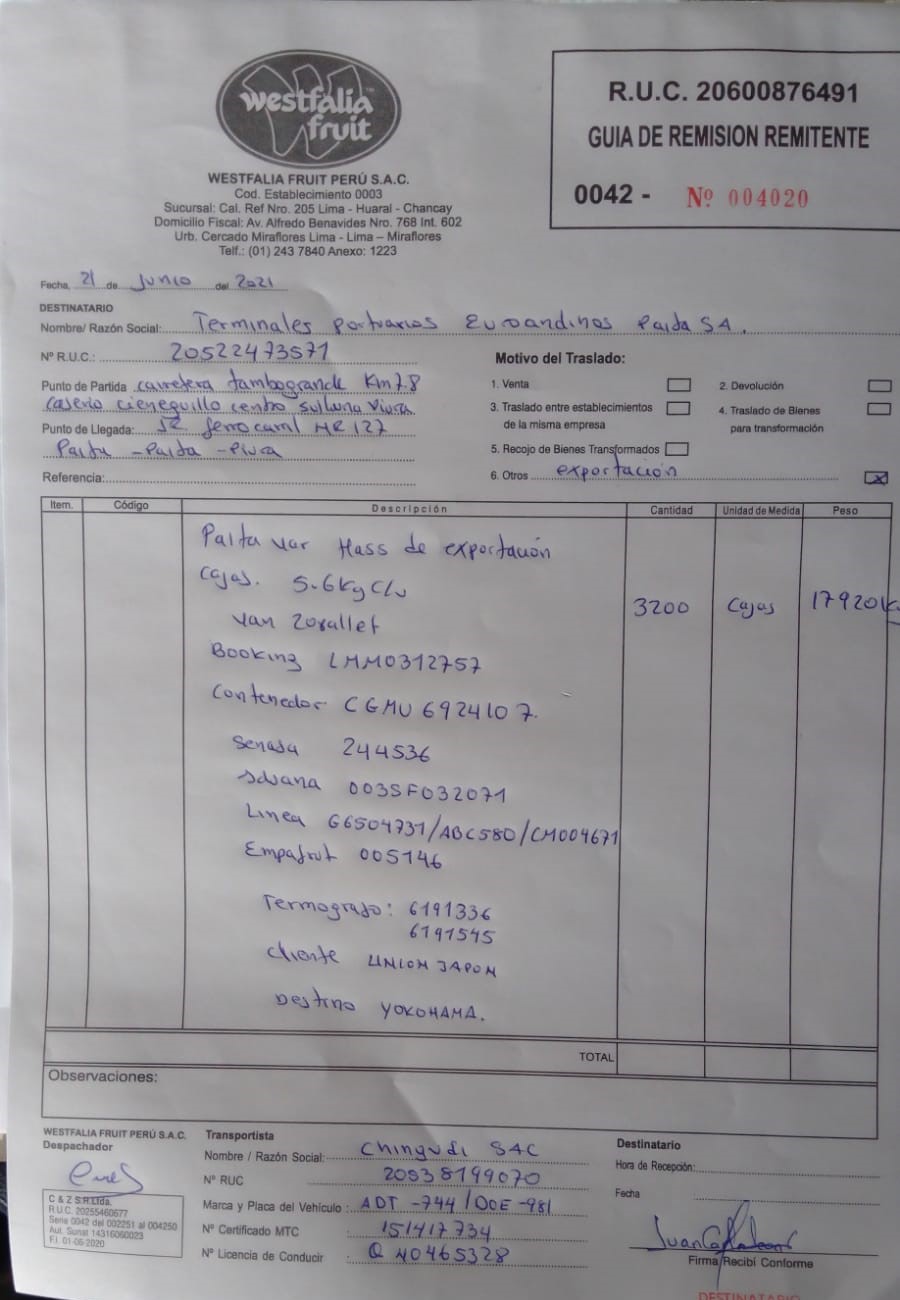 westfalia™
fruit
WESTFALIA FRUIT PERÚ S.A.C.
Cod. Establecimiento 0003
Sucursal: Cal. Ref Nro. 205 Lima - Huaral - Chancay
Domicilio Fiscal: Av. Alfredo Benavides Nro. 768 Int. 602
Urb. Cercado Miraflores Lima - Lima – Miraflores
Telf.: (01) 243 7840 Anexo: 1223
R.U.C. 20600876491
GUIA DE REMISION REMITENTE
0042 - Nº 004020
Fecha, 21 de Junio del 2021
DESTINATARIO
Nombre/ Razón Social: Terminales portuarios Euroandinos Paita SA.
Nº R.U.C.: 20522473571
Punto de Partida carretera tambogrande Km 7.8
caserio cieneguillo centro sullana Piura
Punto de Llegada: Jr ferrocarril 127
Paita - Paita - Piura
Referencia:
Motivo del Traslado:
1. Venta
2. Devolución
3. Traslado entre establecimientos
de la misma empresa
4. Traslado de Bienes
para transformación
5. Recojo de Bienes Transformados
6. Otros exportación X
Item. Código Descripción Cantidad Unidad de Medida Peso
Palta var Hass de exportación
Cajas. 5.6Kg C/u 3200 Cajas 17920K
van 20pallet
Booking LMM0312757
Contenedor CGMU 6924107.
Senasa 244536
Aduana 003SF032071
Linea G6504731/ABC580/CM004671
Empafrut 005146
Termografo: 6191336
6191545
Cliente UNION JAPON
Destino YOKOHAMA.
TOTAL
Observaciones:
WESTFALIA FRUIT PERÚ S.A.C.
Despachador
C & Z S.R.Ltda.
R.U.C. 20255460677
Serie 0042 del 002251 al 004250
Aut. Sunat 14316060023
F.I. 01-06-2020
Transportista
Nombre / Razón Social: Chingudi SAC
Nº RUC 20538199070
Marca y Placa del Vehículo: ADT -744 / DOE -981
Nº Certificado MTC : 151417734
Nº Licencia de Conducir : Q 40465328
Destinatario
Hora de Recepción:
Fecha
Firma/Recibí Conforme
DESTINATARIO